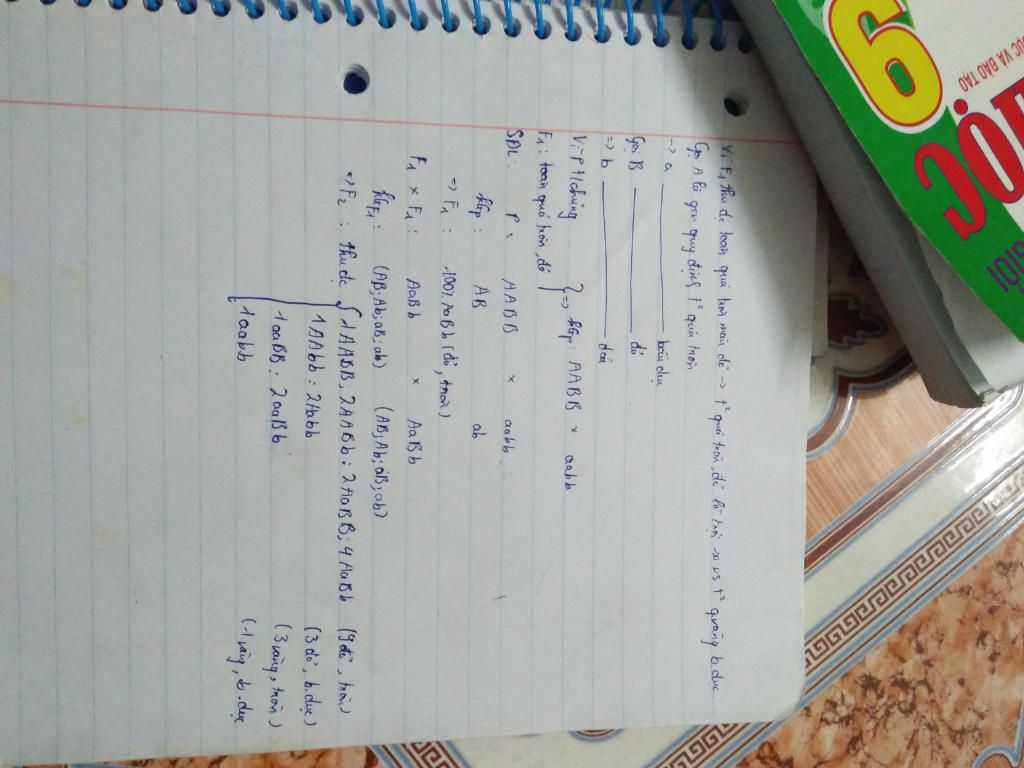 Vì F1 thu đc toàn quả tròn màu đỏ → t² quả tròn, đỏ là trội so vs t² q vàng b.dục
Gọi A là gen quy định t² quả tròn
→ a ——— bầu dục
Gọi B ——— đỏ
=> b ———
Vì P t/chủng
F1: toàn quả tròn, đỏ } => P: AABB × aabb
SĐL: P: AABB × aabb
GP: AB ab
=> F1: 100% AaBb (đỏ, tròn)
F1 × F1: AaBb × AaBb
GF1: (AB; Ab; aB; ab) (AB; Ab; aB; ab)
=> F2: thu đc { 1AABB; 2AABb; 2AaBB; 4AaBb (9 đỏ, tròn)
1AAbb : 2Aabb (3 đỏ, b.dục)
1aaBB : 2aaBb (3 vàng, tròn)
1aabb (1 vàng, b.dục
6
ỤC VÀ ĐÀO TẠO
ỌC
GIỎI